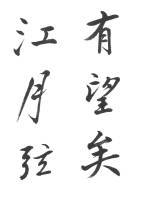 有望矣
江月弦